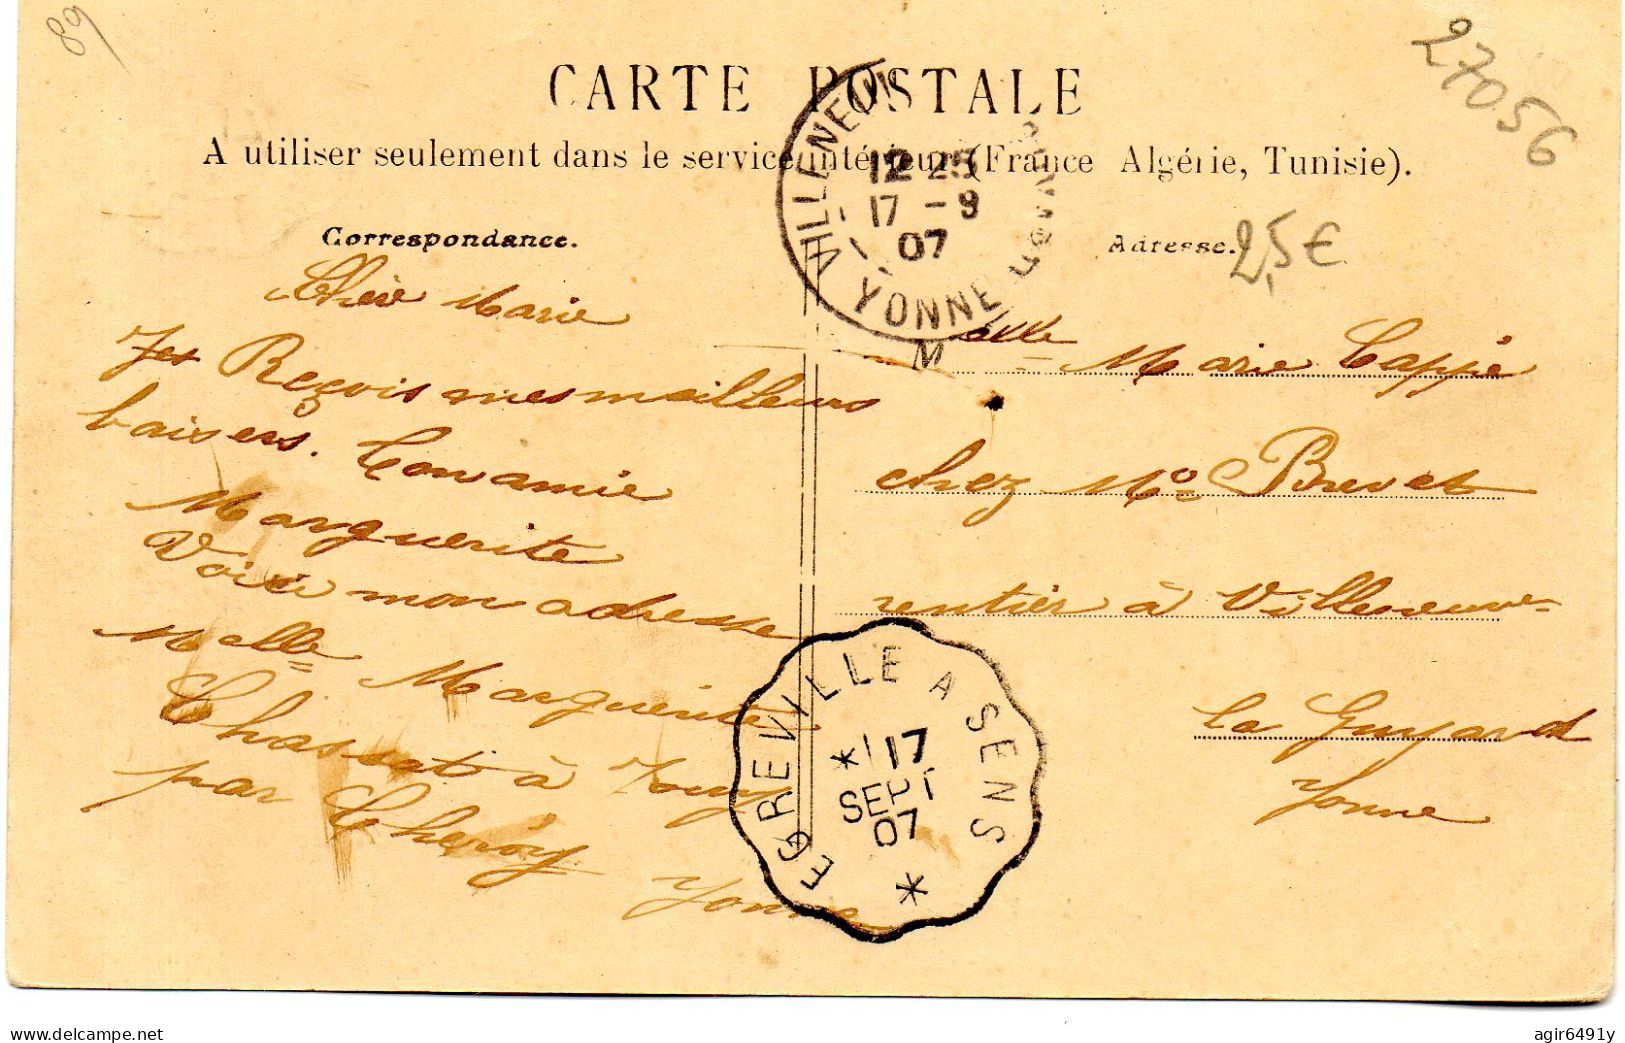 89
27056
CARTE POSTALE
A utiliser seulement dans le service intérieur (France Algérie, Tunisie).
Correspondance.
Chère Marie
Reçois mes meilleurs
baisers. Ton amie
Marguerite
Voici mon adresse
Melle Marguerite
Chassat à Jouy
par Cheroy
Yonne
Adresse.
2,5€
Melle Marie Cappé
chez Mr Brevet
rentier à Villeneuve
la Guyard
Yonne
VILLENEUVE LA GUYARD
12 25
17 - 9
07
YONNE
EGREVILLE A SENS
17
SEPT
07
delcampe.net
agir6491y